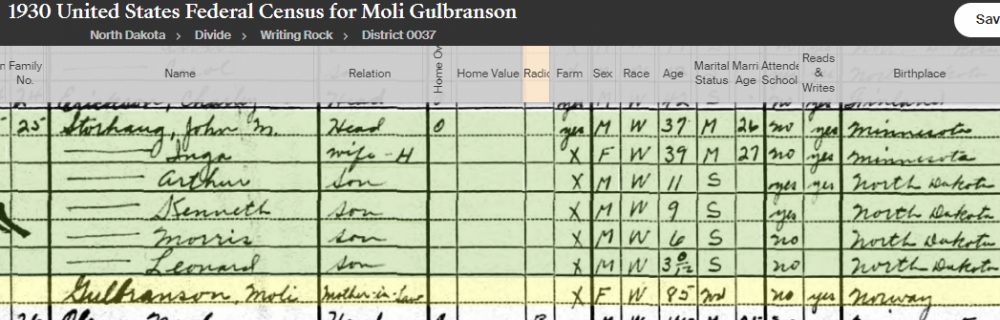 1930 United States Federal Census for Moli Gulbranson
Sav
North Dakota > Divide > Writing Rock > District 0037
Family No. Name Relation Home Ow Home Value Radio Farm Sex Race Age Marital Status Marri Age Attende School Reads & Writes Birthplace
Head yes M W no yes
25 Storhaug, John M. Head O yes M W 37 M 26 no yes Minnesota
Inga wife-H X F W 39 M 27 no yes Minnesota
Arthur son X M W 11 S yes yes North Dakota
Kenneth son X M W 9 S yes North Dakota
Morris son X M W 6 S no North Dakota
Leonard son X M W 3 0/12 S no North Dakota
Gulbranson, Moli Mother-in-law X F W 85 Wd no yes Norway